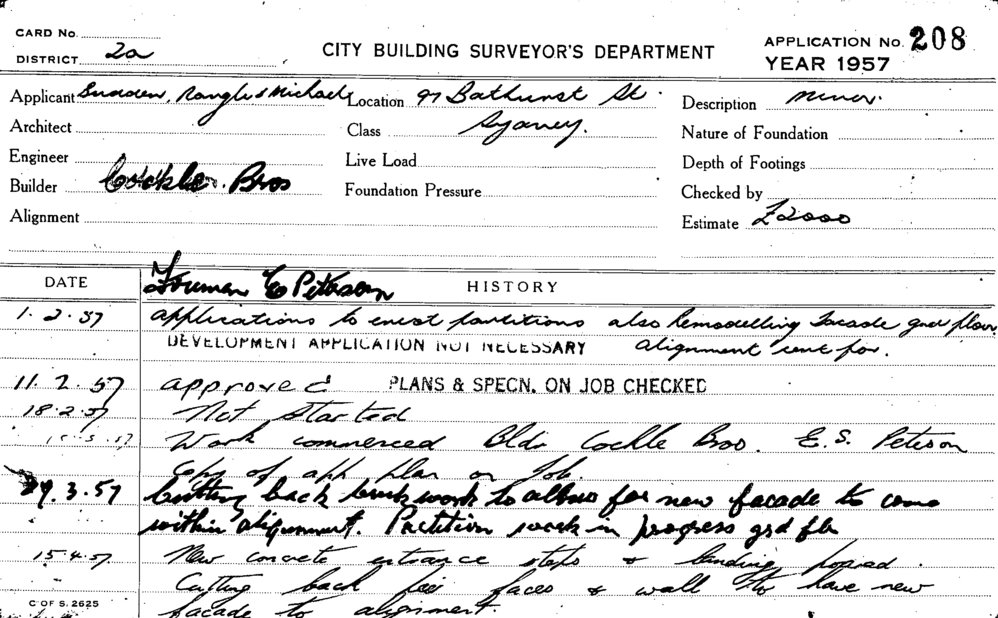 CARD No.
DISTRICT 2a
CITY BUILDING SURVEYOR'S DEPARTMENT
APPLICATION No. 208
YEAR 1957
Applicant & Michael Location 97 Bathurst St. Description minor.
Architect Class Sydney. Nature of Foundation
Engineer Live Load Depth of Footings
Builder Cockle Bros Foundation Pressure Checked by
Alignment Estimate £2000
DATE Foreman E Peterson HISTORY
1.2.57 applications to erect partitions also Remodelling facade grd floor
DEVELOPMENT APPLICATION NOT NECESSARY alignment sent for.
11.2.57 approved PLANS & SPECN. ON JOB CHECKED
18.2.57 Not Started
Work commenced Bldr Cockle Bros. E.S. Peterson
Copy of app plan on Job.
29.3.57 Cutting back brick work to allow for new facade to come
within alignment. Partition work in progress grd flr
15.4.57 New concrete entrance steps & landing poured.
Cutting back pier faces & wall to have new
facade to alignment.
C OF S. 2625